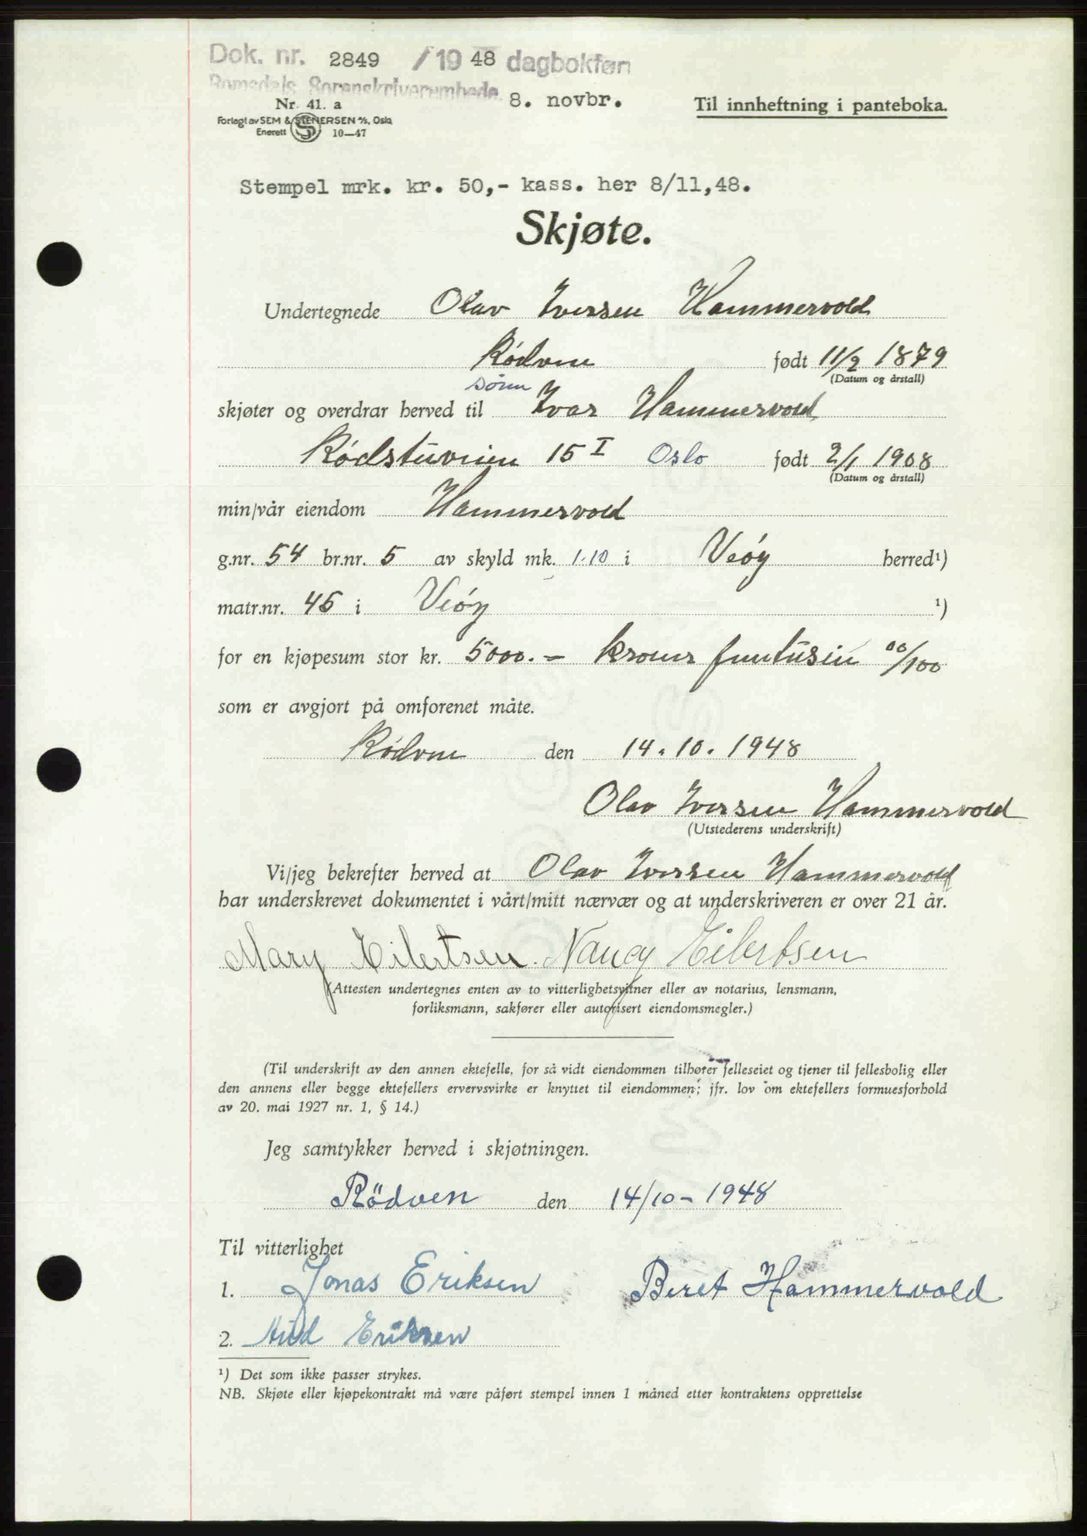 Dok. nr. 2849 /19 48 dagbokført
Romsdals Sorenskriverembede 8. novbr.
Nr. 41. a
Til innheftning i panteboka.
Forlagt av SEM & STENERSEN A/S, Oslo
Enerett 10—47
Stempel mrk. kr. 50,- kass. her 8/11,48.
Skjøte.
Undertegnede Olav Iversen Hammervold
Rödven født 11/2 1879
(Datum og årstall)
sönn
skjøter og overdrar herved til Ivar Hammervold
Rödstuveien 15 I Oslo født 2/1 1908
(Datum og årstall)
min/vår eiendom Hammervold
g.nr. 54 br.nr. 5 av skyld mk. 1.10 i Veöy herred¹)
matr.nr. 45 i Veöy ¹)
for en kjøpesum stor kr. 5000.- kroner femtusin 00/100
som er avgjort på omforenet måte.
Rödven den 14.10.1948
Olav Iversen Hammervold
(Utstederens underskrift)
Vi/jeg bekrefter herved at Olav Iversen Hammervold
har underskrevet dokumentet i vårt/mitt nærvær og at underskriveren er over 21 år.
Mary Eilertsen. Nancy Eilertsen
(Attesten undertegnes enten av to vitterlighetsvitner eller av notarius, lensmann,
forliksmann, sakfører eller autorisert eiendomsmegler.)
(Til underskrift av den annen ektefelle, for så vidt eiendommen tilhører felleseiet og tjener til fellesbolig eller
den annens eller begge ektefellers ervervsvirke er knyttet til eiendommen; jfr. lov om ektefellers formuesforhold
av 20. mai 1927 nr. 1, § 14.)
Jeg samtykker herved i skjøtningen.
Rödven den 14/10-1948
Til vitterlighet
1. Jonas Eriksen Beret Hammervold
2. Eriksen
¹) Det som ikke passer strykes.
NB. Skjøte eller kjøpekontrakt må være påført stempel innen 1 måned etter kontraktens opprettelse